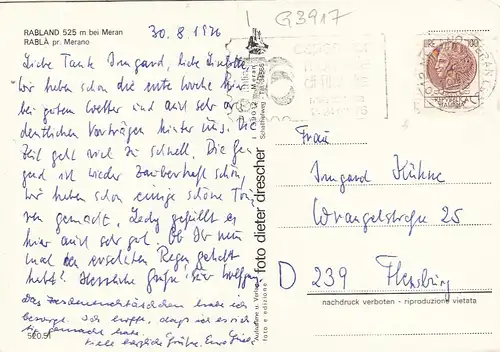 RABLAND 525 m bei Meran
RABLÀ pr. Merano
30.8.1976
G3917
Liebe Tante Irmgard, liebe
Wir haben schon die erste Woche hier
bei gutem Wetter und auch sehr
dentlichen Vorträgen hinter uns. Die
Zeit geht viel zu schnell. Die Ge-
gend ist wieder zauberhaft schön,
wir haben schon einige schöne Tou-
ren gemacht. Lady gefällt es
hier auch sehr gut. Ob Ihr nun
mal den ersehnten Regen gehabt
habt? Herzliche Grüße Euer Wolfgang
Das habe ich
besorgt. Ich hoffe, dass ich es
gemacht habe.
viele herzliche Grüße, Eure
520.51
foto dieter drescher
Aufnahme u. Verlag
foto e edizione
LIRE 100
Frau
Irmgard Kühne
Wrangelstraße 25
D 239 Flensburg
nachdruck verboten - riproduzione vietata